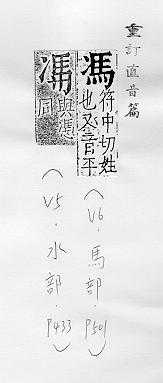 重訂直音篇
馮符中切姓
也又音平
(V6·馬部·P501)
凴與馮
同
(V5·水部·P433)